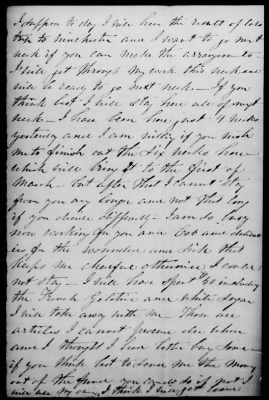 I suppose to day I will hear the result of
to Winchester and I want to go next
week if you can make the arrangements
I will get through my work this week and
will be ready to go next week. If you
think best I will stay here all of next
week. I have been here just 4 weeks
yesterday and I am willing if you wish
me to finish out the six weeks here
which will bring it to the first of
March. but after that I cannot stay
from you any longer and not this long
if you decide differently. I am so busy
now working for you and
for the wounded and sick that
keeps me cheerful otherwise I could
not stay. I will have spent including
the French Gelatine and white Sugar
I will take away with me These are
articles I cannot procure else where
and I thought I had better buy some
if you think best to send me the money
out of the fund you can do if not I
will use my own, I think I will get some